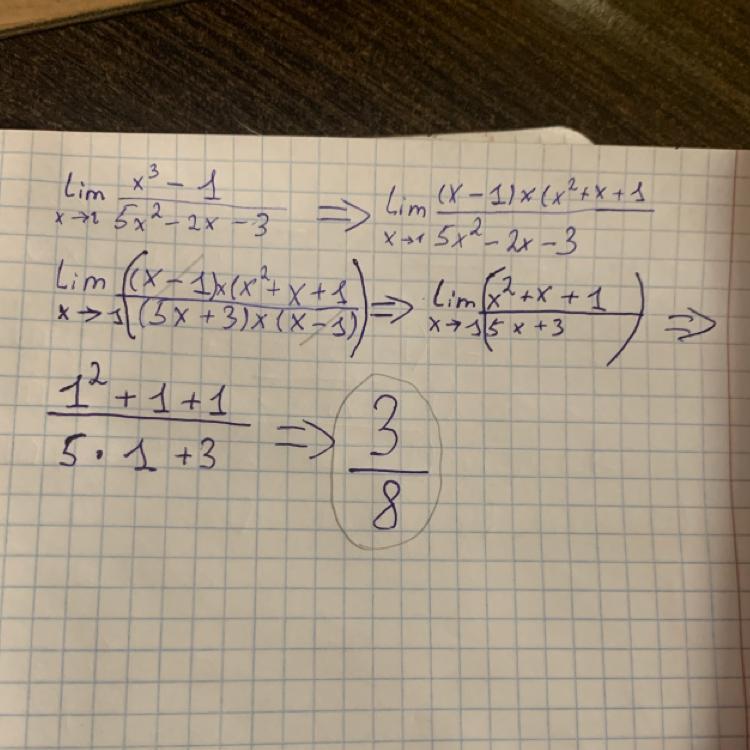 lim x→1 (x³ - 1)/(5x² - 2x - 3) ⇒ lim x→1 ((x - 1)×(x² + x + 1)/(5x² - 2x - 3)
lim x→1 ((x - 1)×(x² + x + 1)/((5x + 3)×(x - 1)) ⇒ lim x→1 (x² + x + 1)/(5x + 3) ⇒
(1² + 1 + 1)/(5 · 1 + 3) ⇒ 3/8